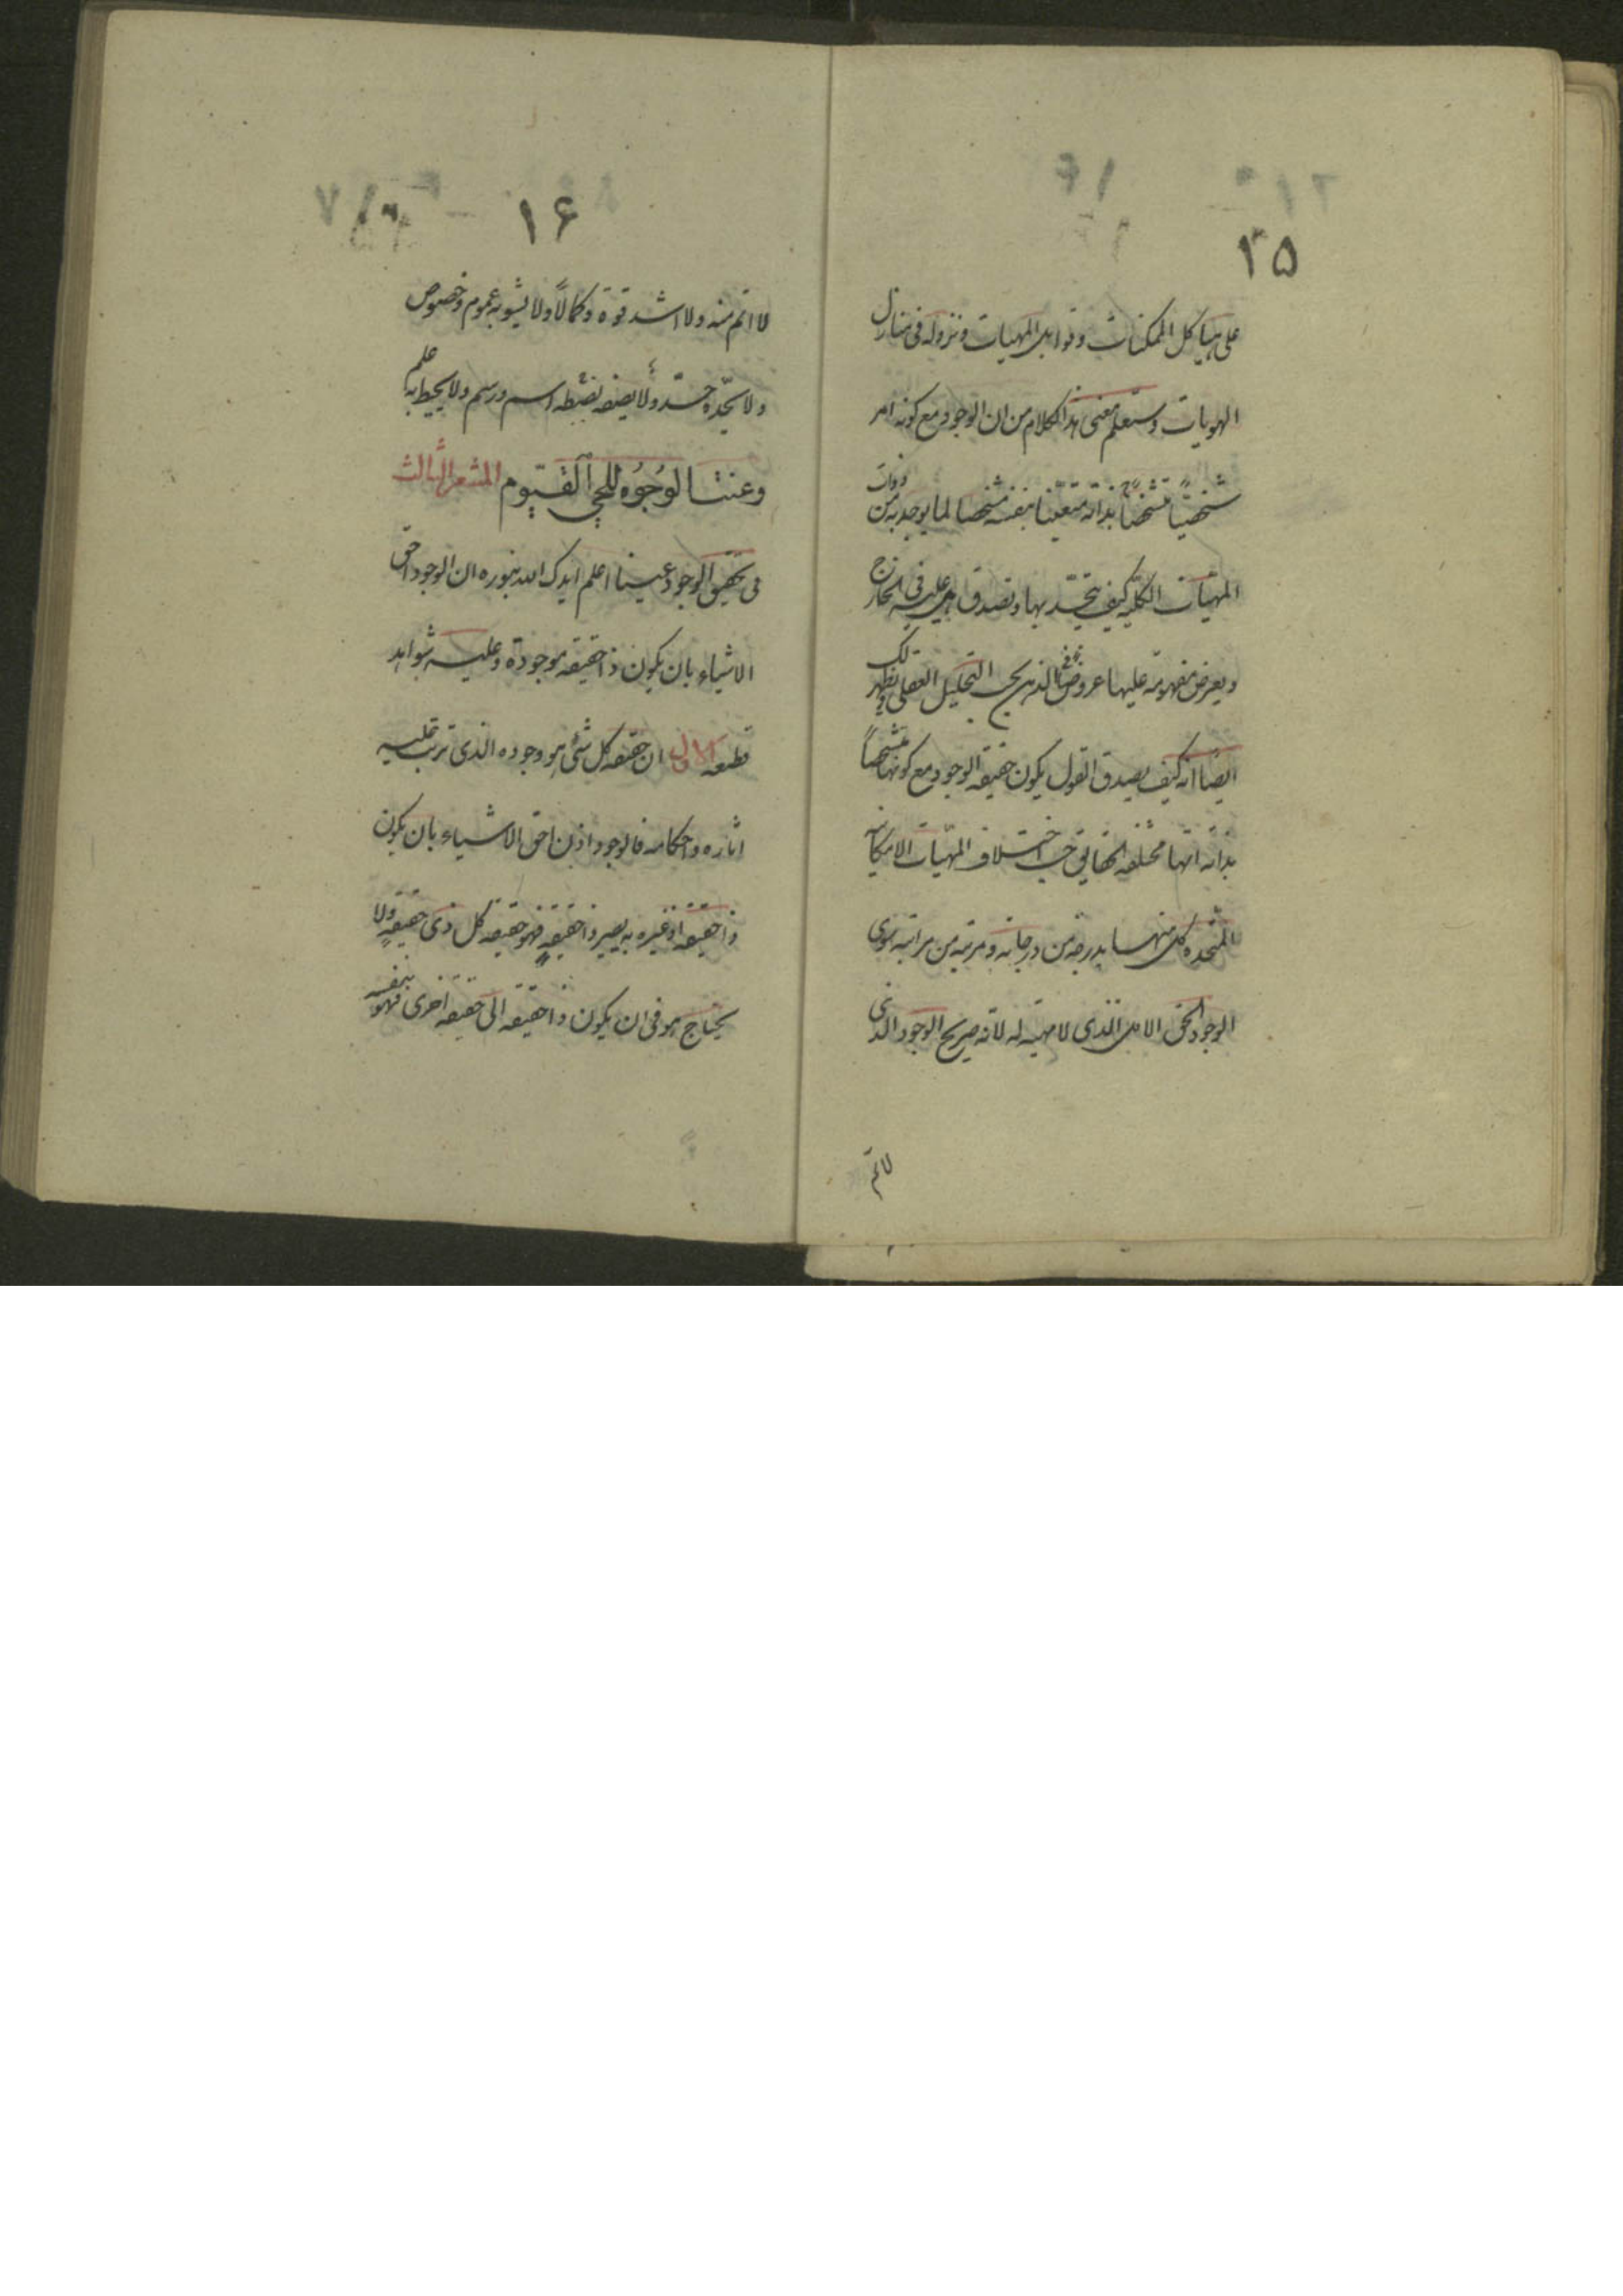 ١٥
على هياكل الممكنات وقوابل المهيات ونزوله فى منازل
الهويات وستعلم معنى هذا الكلام من ان الوجود مع كونه امر
شخصيّاً متشخصاً بذاته متعيّنا بنفسه مشخصا لما يوجد به من ذوات
المهيّات الكليّه كيف يتحّد بها و تصدق هى عليه فى الخارج
ويعرض مفهومه عليها عروضا فى الذهن بحسب التحليل العقلى ويظهر لك
ايضًا انه كيف يصدق القول بكون حقيقه الوجود مع كونها متشخصاً
بذاته انها مختلفه الحقايق حسب اختلاف المهيّات الامكانيه
المتحده كل منها بدرجه من درجاته ومرتبه من مراتبه سوى
الوجود الحق الاول الذى لا مهيّه له لانّه صريح الوجود الذى
لا اتم
١۶
لا اتم منه ولا اشد قوة وكمالاً ولا يشوبه عموم وخصوص
ولا يحّده حدّ ولا يصفه يضبطه اسم ورسم ولا يحيط به علم
وعنتا الوُجُوُه للحي القيّوم المشعر الثالث
فى تحقيق الوجود عينا اعلم ايدك الله بنوره ان الوجود احق
الاشياء بان يكون ذا حقيقه موجودة وعليه شواهد
قطعيه الاول ان حقيقه كل شئ هو وجوده الذى ترتب عليه
اثاره واحكامه فالوجود اذن احق الاشياء بان يكون
ذا حقيقه اذ غيره به يصير ذا حقيقه فهو حقيقه كل ذى حقيقهٍ ولا
يحتاج هو فى ان يكون ذا حقيقه الى حقيقه اخرى فهو بنفسه